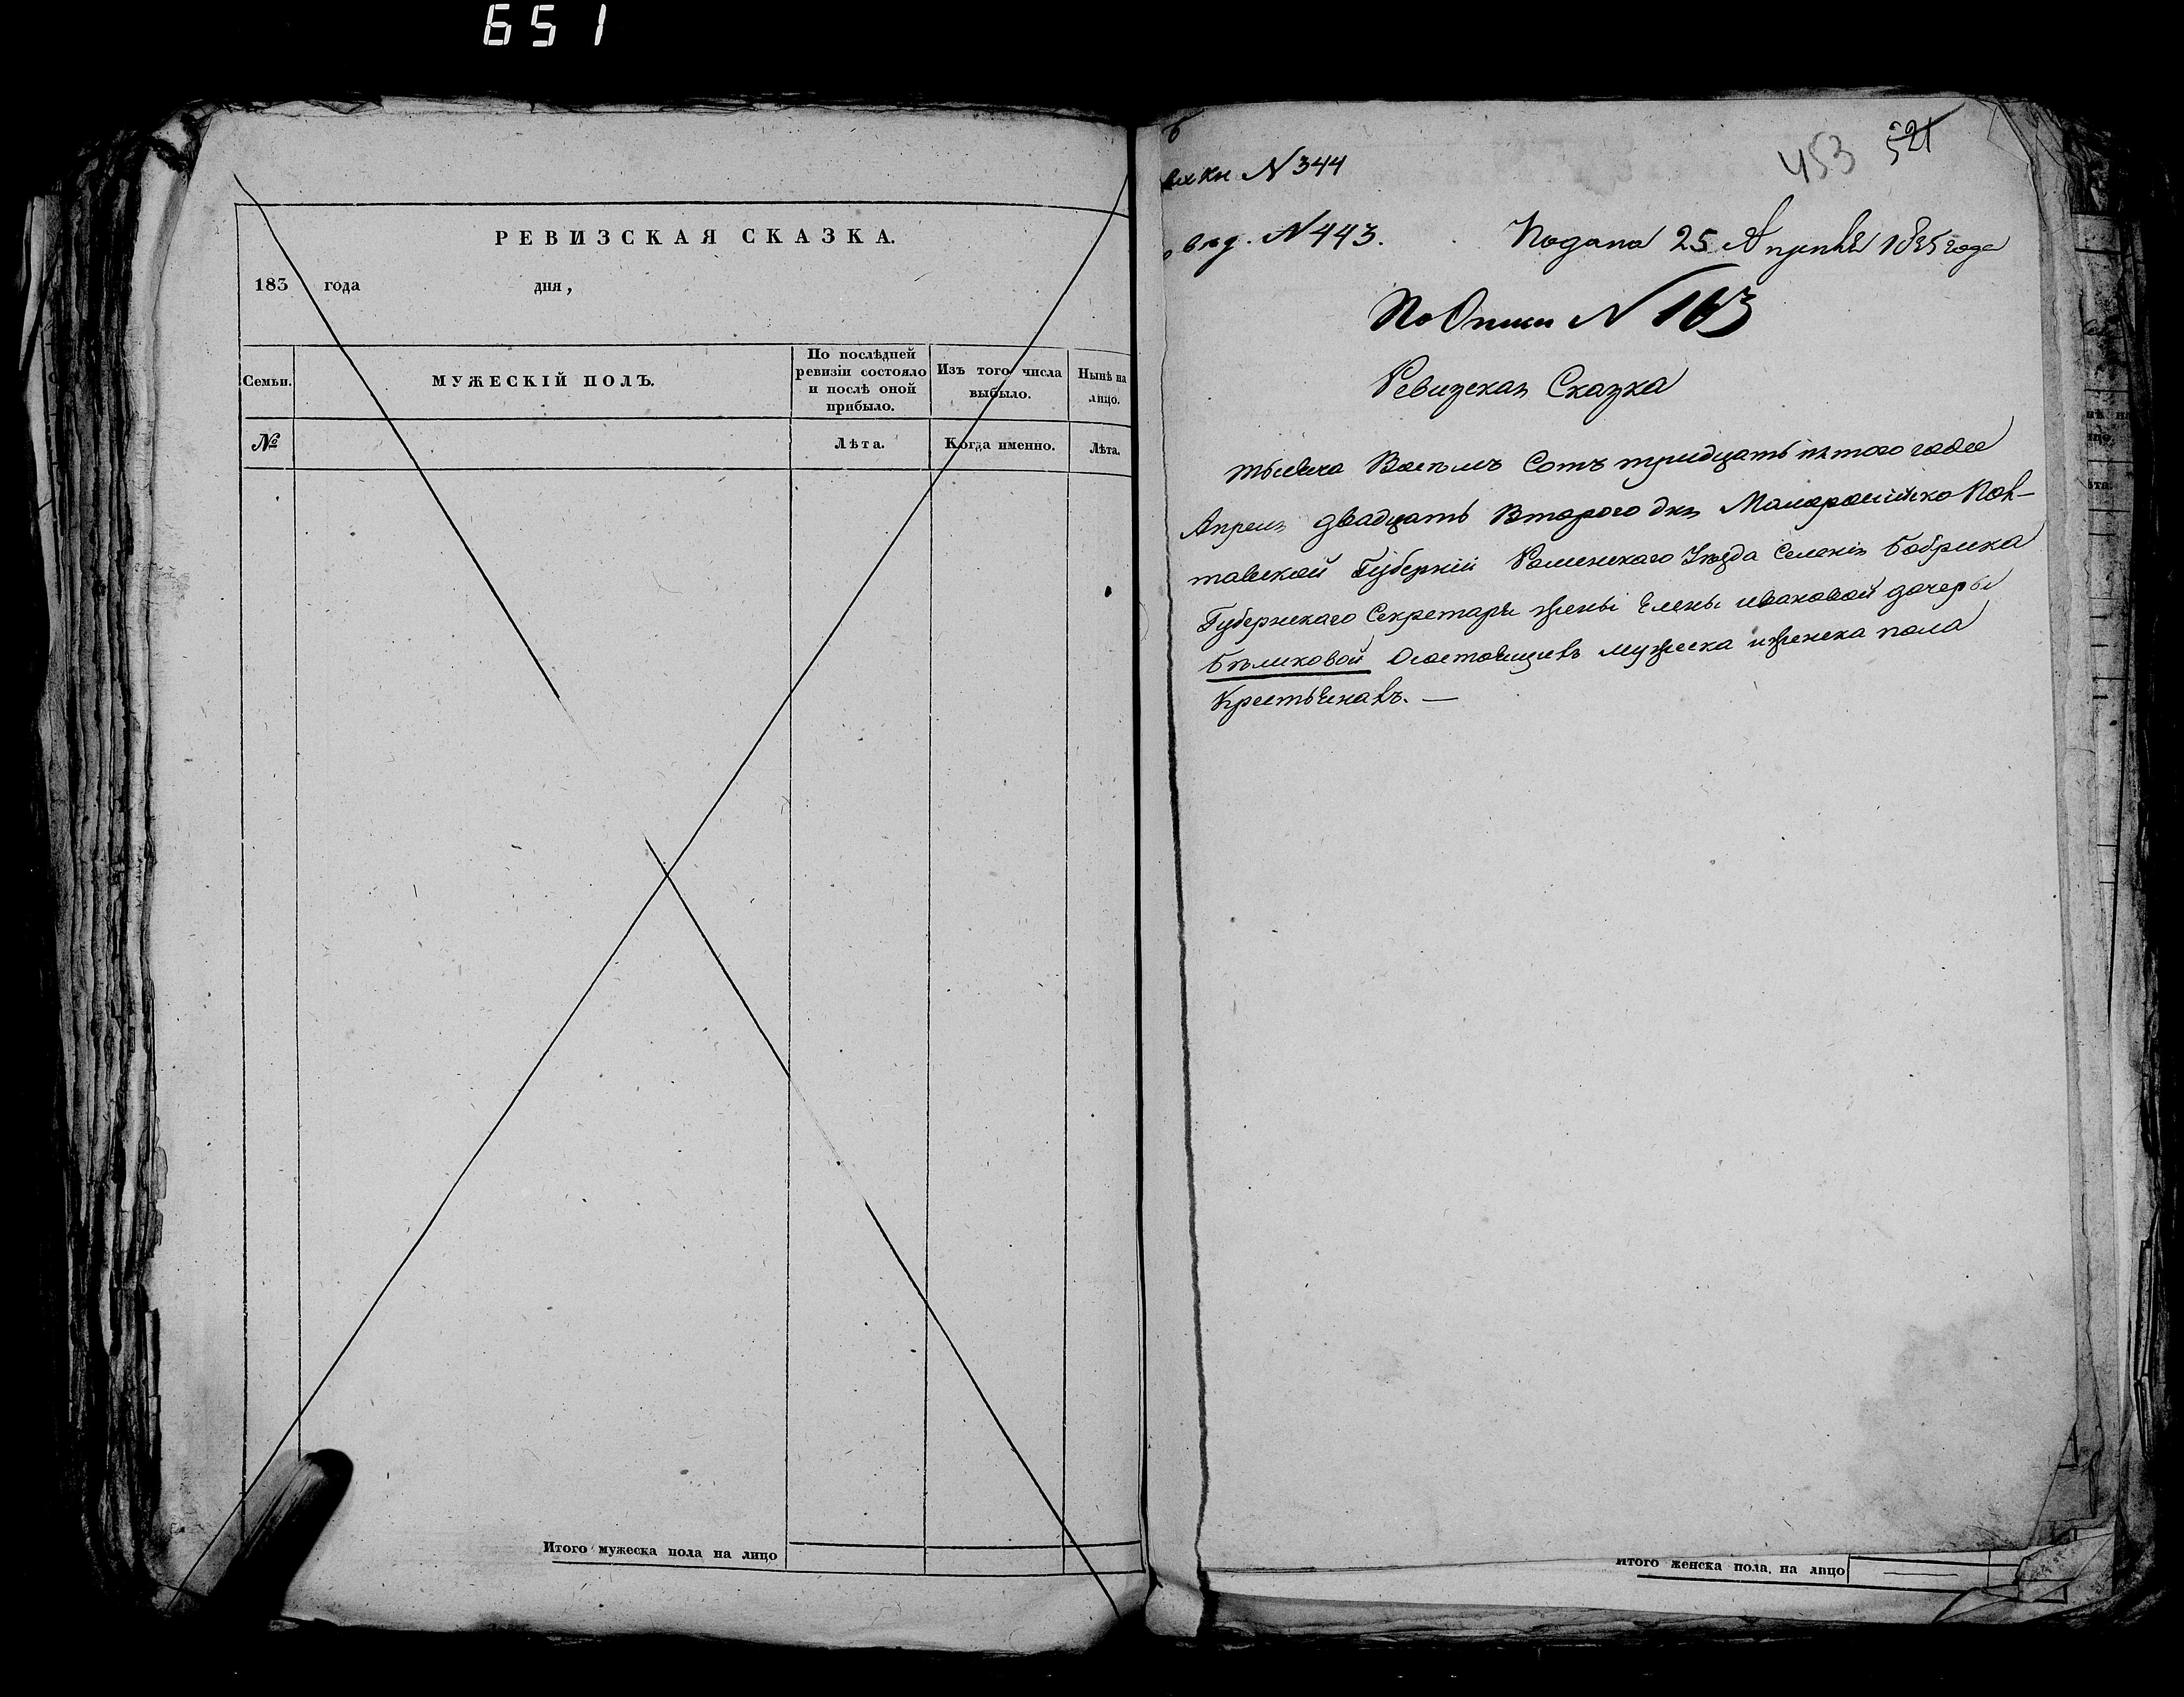 651
РЕВИЗСКАЯ СКАЗКА.
183 года дня,
Семьи. МУЖЕСКІЙ ПОЛЪ. По послѣдней ревизіи состояло и послѣ оной прибыло. Изъ того числа выбыло. Нынѣ на лицо.
№ Лѣта. Когда именно. Лѣта.
Итого мужеска пола на лицо
453 521
N 344
N 443. Подана 25 Апреля 1835 года
По Описи N 163
Ревизская Сказка
тысяча Восемь Сотъ тридцать пятого года
Апреля двадцать Второго дня Малоросiйско Пол-
тавской Губерніи Роменскаго Уезда Селенія Бобрика
Губернскаго Секретаря жены Елены ивановой дочеры
Бѣликовой Осостоящихъ мужеска иженска пола
Крестьянахъ. —
Итого женска пола, на лицо